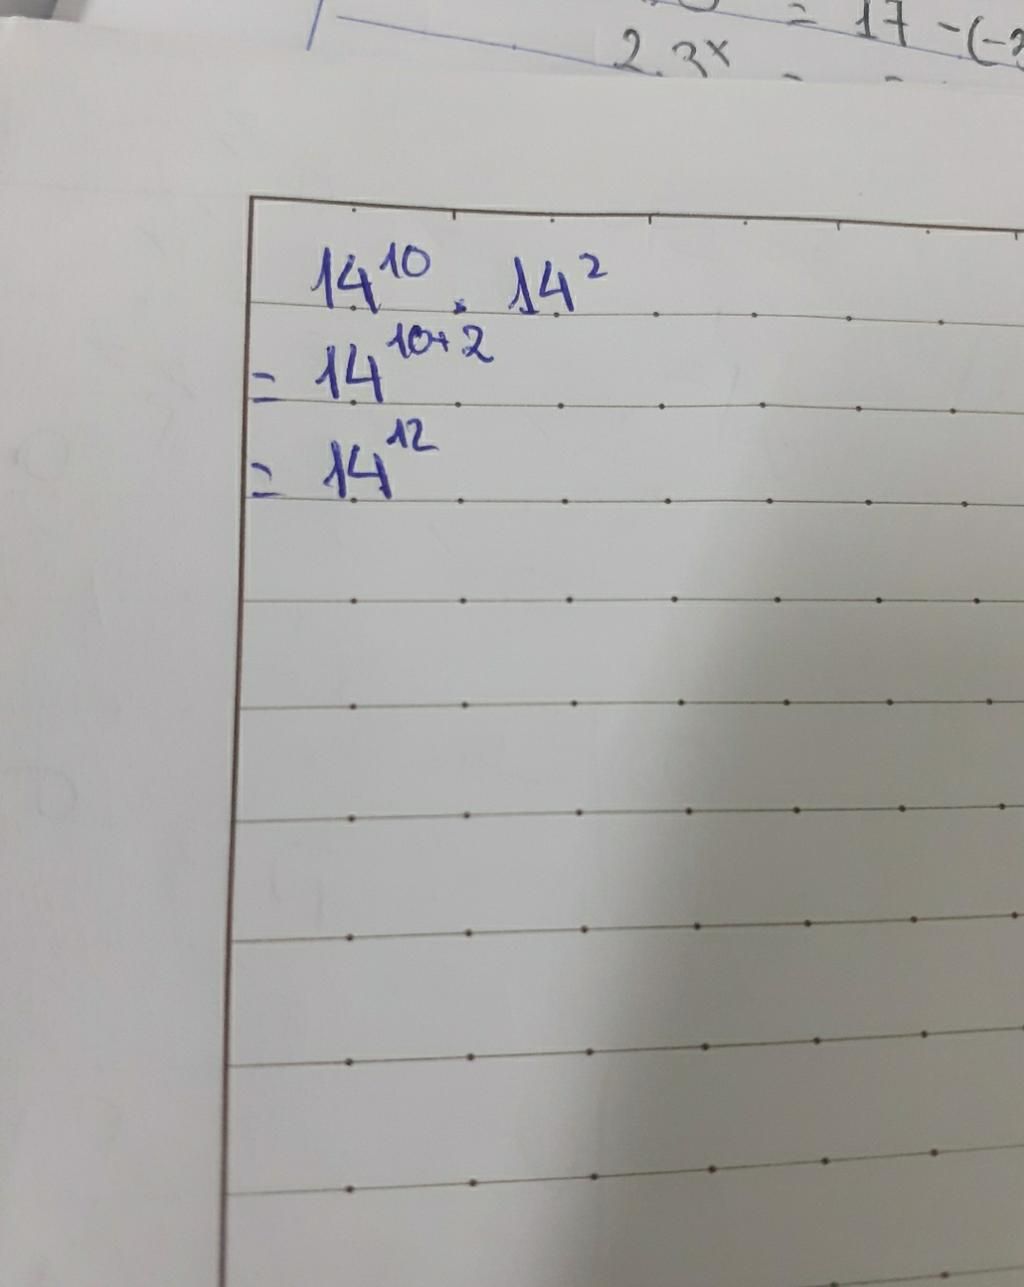 = 17 - (-
2.3ˣ
14¹⁰ . 14²
= 14¹⁰⁺²
= 14¹²